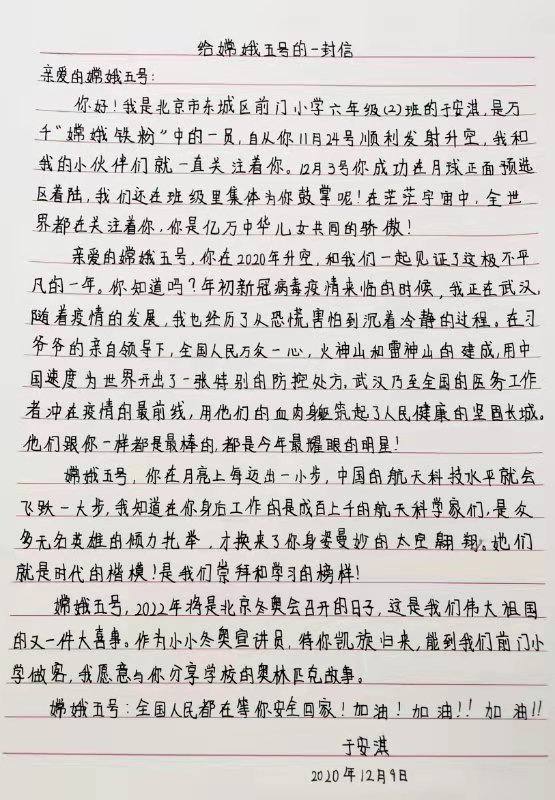 给嫦娥五号的一封信
亲爱的嫦娥五号:
你好!我是北京市东城区前门小学六年级(2)班的于安淇,是万
千"嫦娥铁粉"中的一员,自从你11月24号顺利发射升空,我和
我的小伙伴们就一直关注着你。12月3号你成功在月球正面预选
区着陆,我们还在班级里集体为你鼓掌呢!在茫茫宇宙中,全世
界都在关注着你,你是亿万中华儿女共同的骄傲!
亲爱的嫦娥五号,你在2020年升空,和我们一起见证了这极不平
凡的一年。你知道吗?年初新冠病毒疫情来临的时候,我正在武汉,
随着疫情的发展,我也经历了从恐慌害怕到沉着冷静的过程。在习
爷爷的亲自领导下,全国人民万众一心,火神山和雷神山的建成,用中
国速度为世界开出了一张特别的防控处方,武汉乃至全国的医务工作
者冲在疫情的最前线,用他们的血肉身躯筑起了人民健康的坚固长城。
他们跟你一样都是最棒的,都是今年最耀眼的明星!
嫦娥五号,你在月亮上每迈出一小步,中国的航天科技水平就会
飞跃一大步,我知道在你身后工作的是成百上千的航天科学家们,是众
多无名英雄的倾力托举,才换来了你身姿曼妙的太空翱翔。她们
就是时代的楷模!是我们崇拜和学习的榜样!
嫦娥五号,2022年将是北京冬奥会召开的日子,这是我们伟大祖国
的又一件大喜事。作为小小冬奥宣讲员,待你凯旋归来,能到我们前门小
学做客,我愿意与你分享学校的奥林匹克故事。
嫦娥五号:全国人民都在等你安全回家!加油!加油!!加油!!
于安淇
2020年12月9日